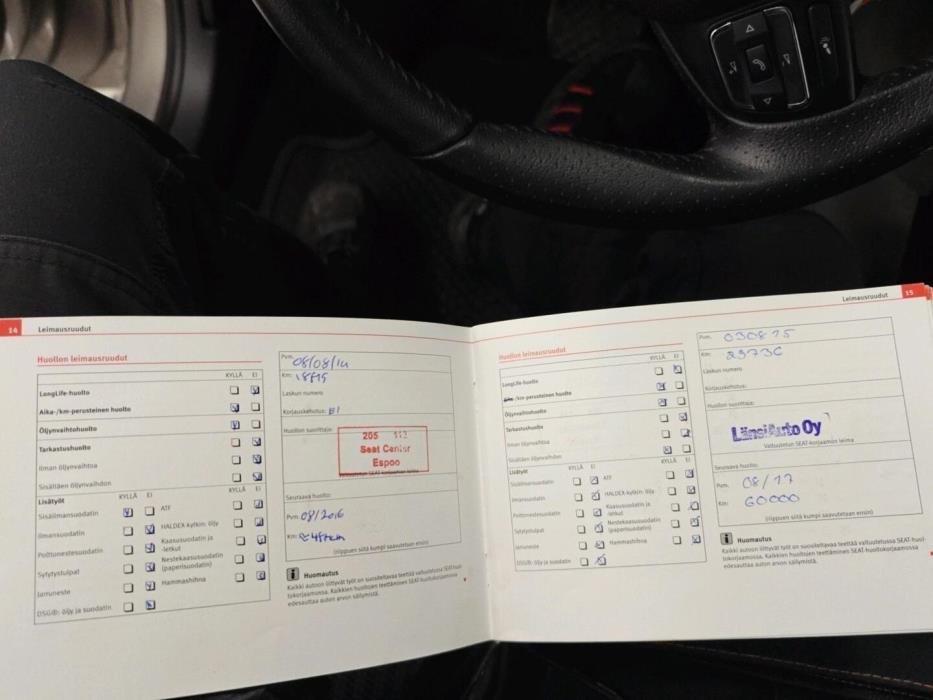 14 Leimausruudut
Huollon leimausruudut
KYLLÄ EI
LongLife-huolto
Aika-/km-perusteinen huolto
Öljynvaihtohuolto
Tarkastushuolto
Ilman öljynvaihtoa
Sisältäen öljynvaihdon
Lisätyöt KYLLÄ EI KYLLÄ EI
Sisäilmansuodatin ATF
Ilmansuodatin HALDEX-kytkin: öljy
Polttonestesuodatin Kaasusuodatin ja
-letkut
Sytytystulpat Nestekaasusuodatin
(paperisuodatin)
Jarruneste Hammashihna
DSG®: öljy ja suodatin
Pvm. 08/08/14
Km:
Laskun numero
Korjauskehotus: EI
Huollon suorittaja:
205
Seat Center
Espoo
Valtuutetun SEAT-korjaamon leima
Seuraava huolto:
Pvm. 08/2016
Km:
(riippuen siitä kumpi saavutetaan ensin)
Huomautus
Kaikki autoon liittyvät työt on suositeltavaa teettää valtuutetussa SEAT-huol-
tokorjaamossa. Kaikkien huoltojen teettäminen SEAT-huoltokorjaamossa
edesauttaa auton arvon säilymistä.
Leimausruudut 15
Huollon leimausruudut
KYLLÄ EI
LongLife-huolto
/km-perusteinen huolto
Öljynvaihtohuolto
Tarkastushuolto
Ilman öljynvaihtoa
Sisältäen öljynvaihdon
Lisätyöt KYLLÄ EI KYLLÄ EI
Sisäilmansuodatin ATF
Ilmansuodatin HALDEX-kytkin: öljy
Polttonestesuodatin Kaasusuodatin ja
-letkut
Sytytystulpat Nestekaasusuodatin
(paperisuodatin)
Jarruneste Hammashihna
DSG®: öljy ja suodatin
Pvm. 030815
Km: 23730
Laskun numero
Korjauskehotus:
Huollon suorittaja:
LänsiAuto Oy
Valtuutetun SEAT-korjaamon leima
Seuraava huolto:
Pvm. 08/17
Km: 60000
(riippuen siitä kumpi saavutetaan ensin)
Huomautus
Kaikki autoon liittyvät työt on suositeltavaa teettää valtuutetussa SEAT-huol-
tokorjaamossa. Kaikkien huoltojen teettäminen SEAT-huoltokorjaamossa
edesauttaa auton arvon säilymistä.